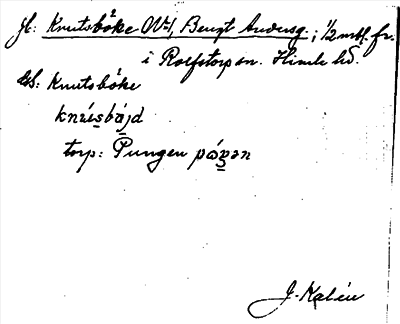 jb: Knutsböke No 1, Bengt Andersg.; 1/2 mtl. fr.
i Rolfstorp sn. Himle hd.
gb: Knutsböke
knʉ́tsbǻjd
torp: Pungen páŋən
J. Kalén